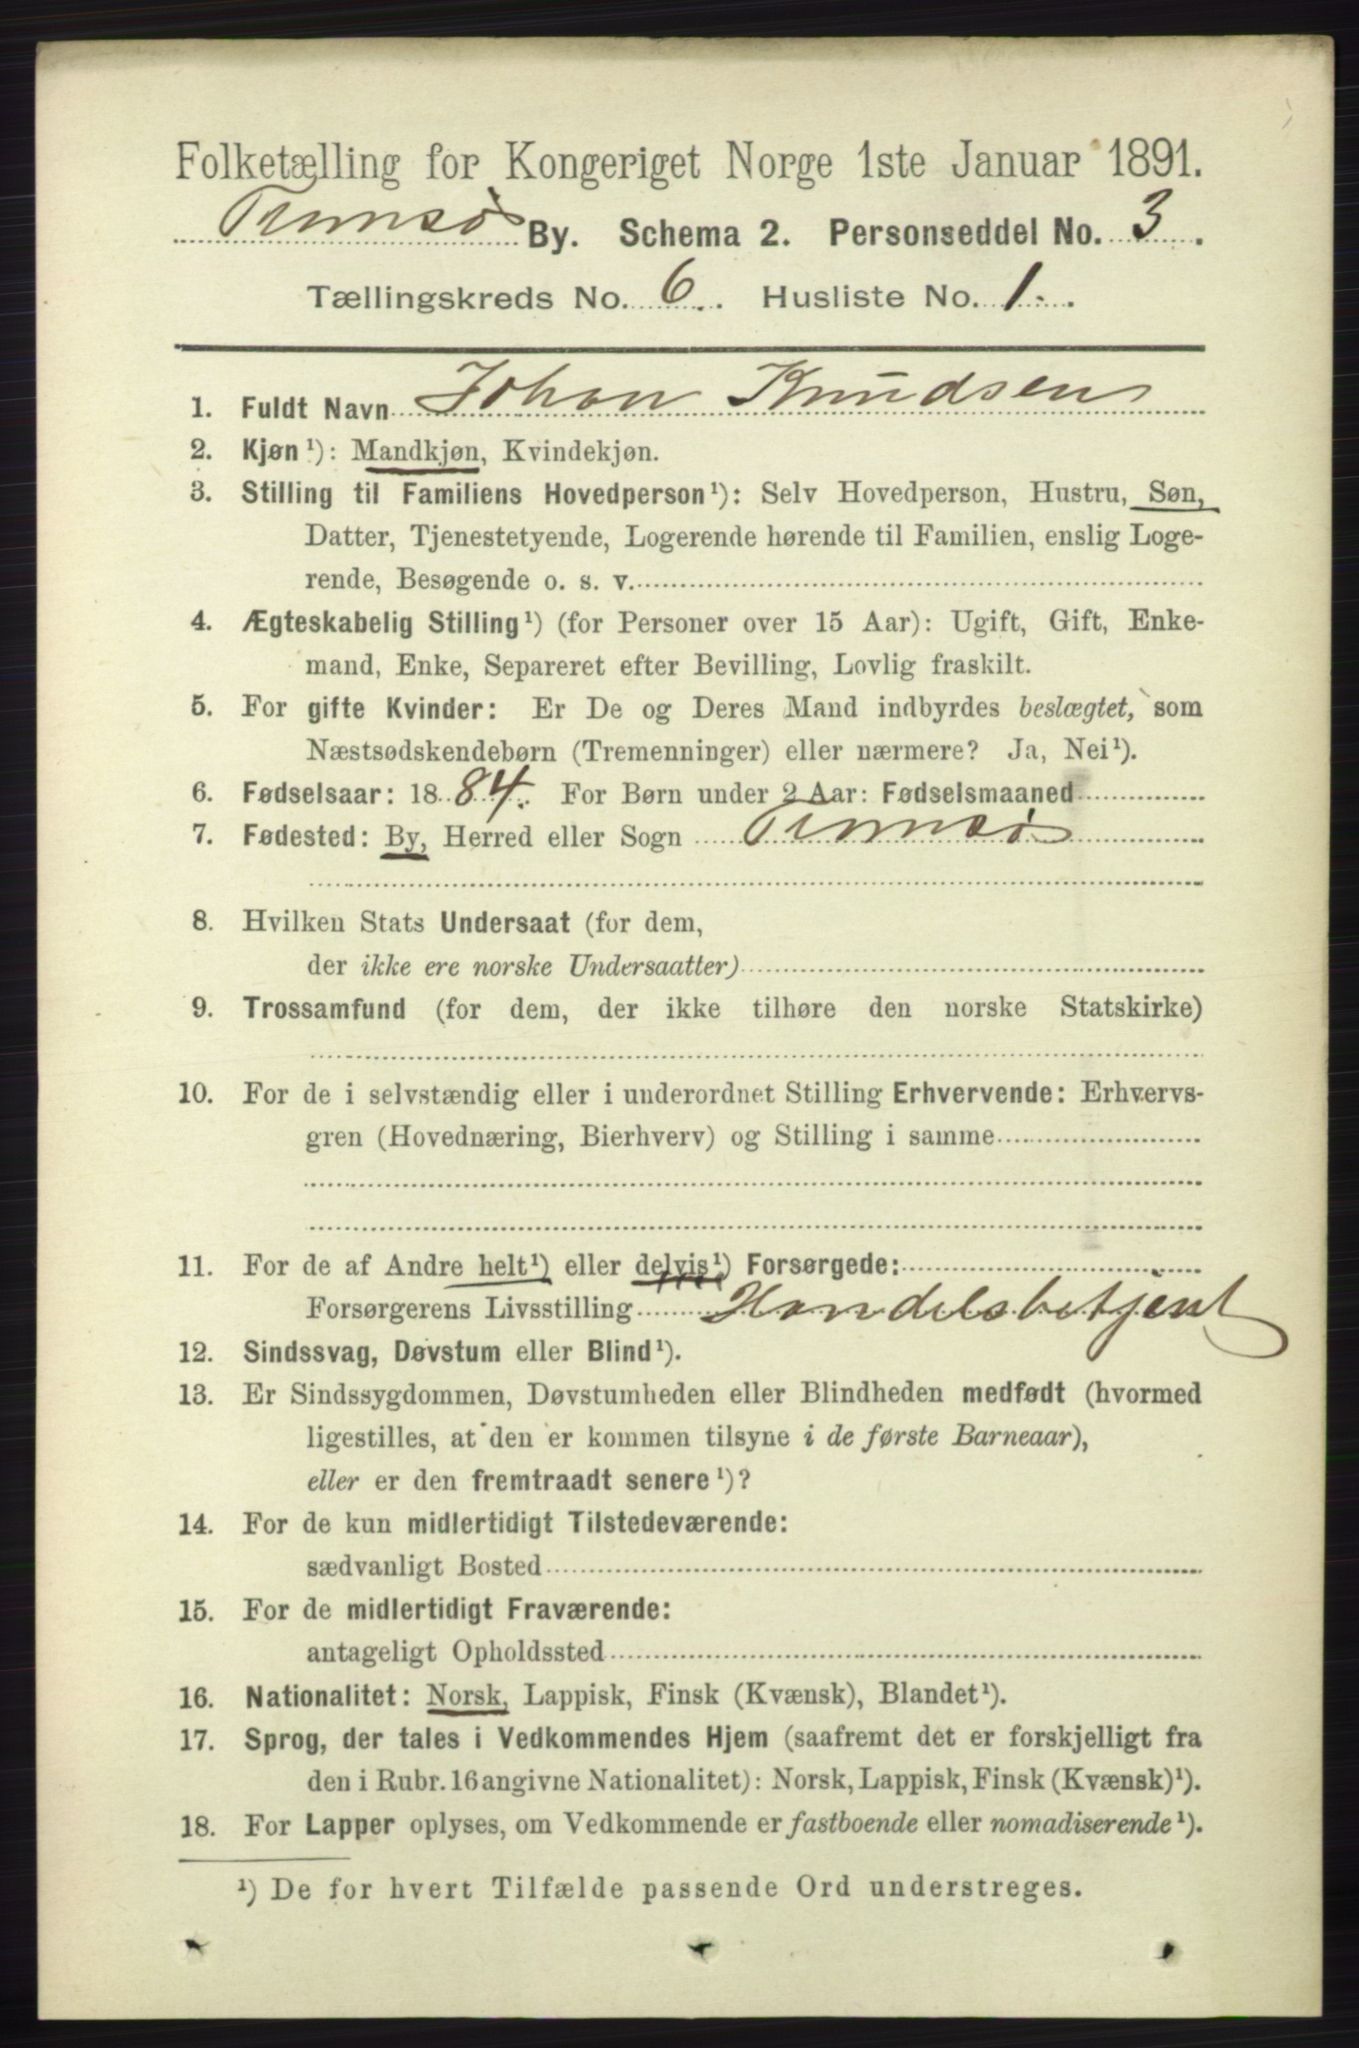 Folketælling for Kongeriget Norge 1ste Januar 1891.
Tromsø By. Schema 2. Personseddel No. 3.
Tællingskreds No. 6. Husliste No. 1.
1. Fuldt Navn Johan Knudsen
2. Kjøn¹): Mandkjøn, Kvindekjøn.
3. Stilling til Familiens Hovedperson¹): Selv Hovedperson, Hustru, Søn,
Datter, Tjenestetyende, Logerende hørende til Familien, enslig Loge-
rende, Besøgende o. s. v.
4. Ægteskabelig Stilling¹) (for Personer over 15 Aar): Ugift, Gift, Enke-
mand, Enke, Separeret efter Bevilling, Lovlig fraskilt.
5. For gifte Kvinder: Er De og Deres Mand indbyrdes beslægtet, som
Næstsødskendebørn (Tremenninger) eller nærmere? Ja, Nei¹).
6. Fødselsaar: 1884. For Børn under 2 Aar: Fødselsmaaned
7. Fødested: By, Herred eller Sogn Tromsø
8. Hvilken Stats Undersaat (for dem,
der ikke ere norske Undersaatter)
9. Trossamfund (for dem, der ikke tilhøre den norske Statskirke)
10. For de i selvstændig eller i underordnet Stilling Erhvervende: Erhvervs-
gren (Hovednæring, Bierhverv) og Stilling i samme
11. For de af Andre helt¹) eller delvis¹) Forsørgede:
Forsørgerens Livsstilling Handelsbetjent
12. Sindssvag, Døvstum eller Blind¹).
13. Er Sindssygdommen, Døvstumheden eller Blindheden medfødt (hvormed
ligestilles, at den er kommen tilsyne i de første Barneaar),
eller er den fremtraadt senere¹)?
14. For de kun midlertidigt Tilstedeværende:
sædvanligt Bosted
15. For de midlertidigt Fraværende:
antageligt Opholdssted
16. Nationalitet: Norsk, Lappisk, Finsk (Kvænsk), Blandet¹).
17. Sprog, der tales i Vedkommendes Hjem (saafremt det er forskjelligt fra
den i Rubr. 16 angivne Nationalitet): Norsk, Lappisk, Finsk (Kvænsk)¹).
18. For Lapper oplyses, om Vedkommende er fastboende eller nomadiserende¹).
¹) De for hvert Tilfælde passende Ord understreges.